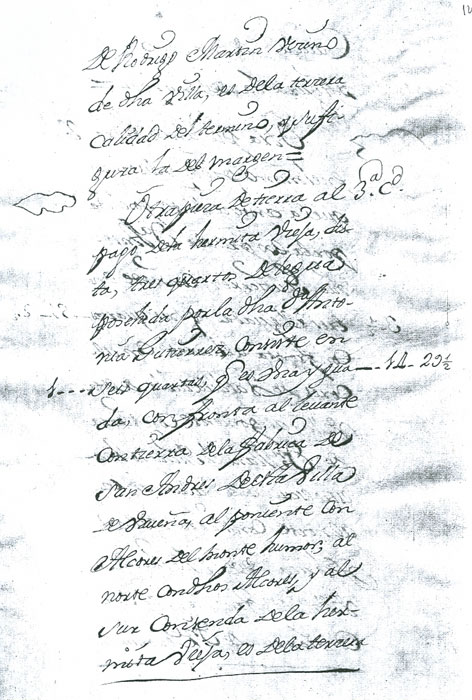 De Rodrigo Martin Vecino
de dha Villa, es de la tercera
calidad del termino, y su fi-
gura la del margen=
Otra pieza de tierra al 3.ª C.d
pago de la hermita Vieja, dis-
ta, tres quartos de legua
posehida por la dha D.ª Anto-
nia Gutierrez, Consiste en
1---- seis quartas, q.e es una yguada --- 14- 29½
da, confronta al levante
Con tierra de la fabrica de
San Andres de dha Villa
de Dueñas, al poniente con
Alcores del monte humor, al
norte con dhos Alcores, y al
sur Con senda de la her-
mita Vieja, es de la tercera